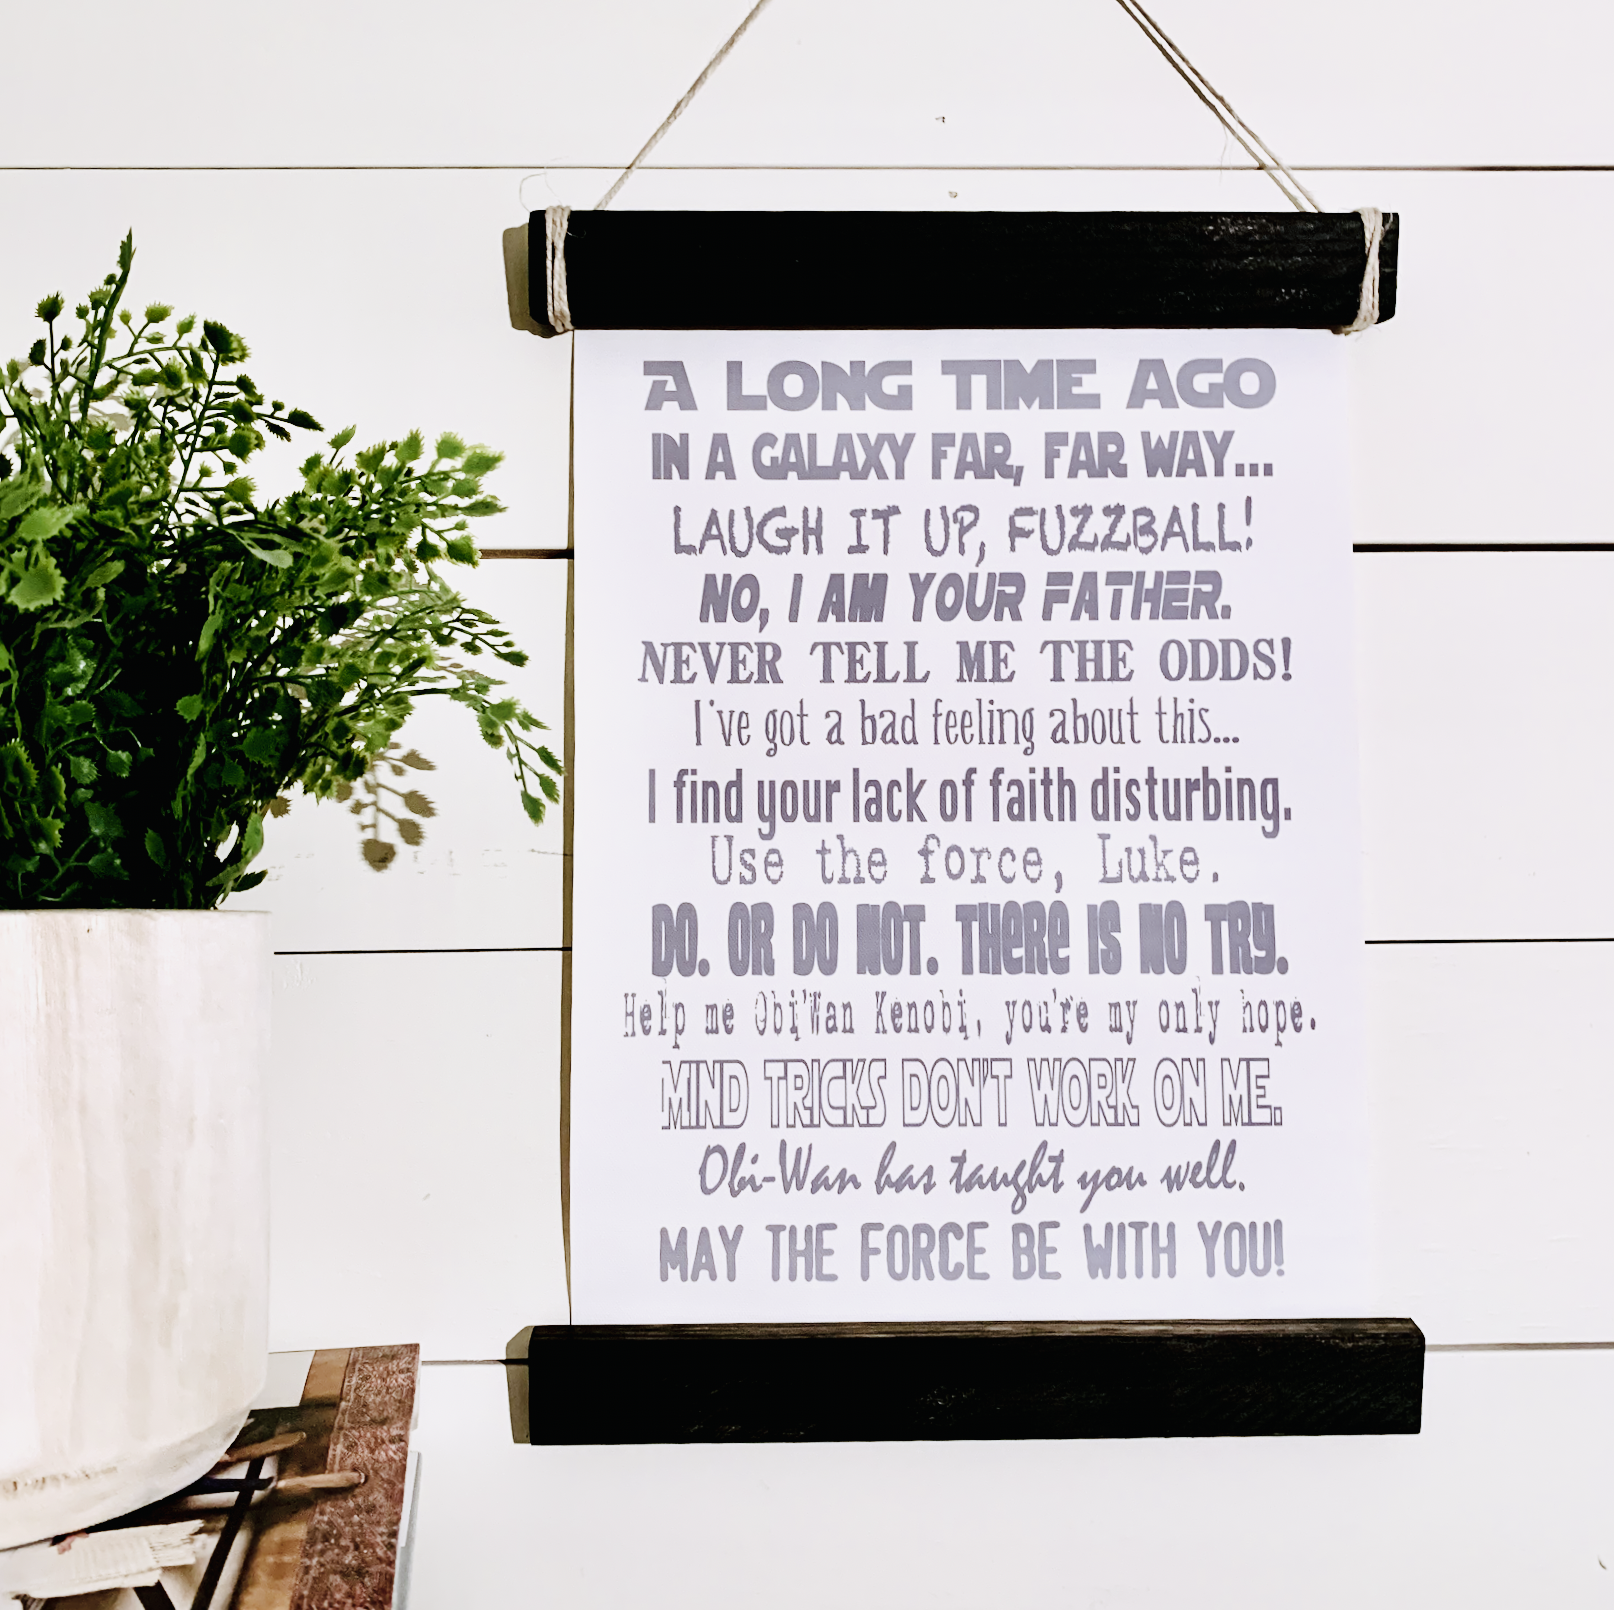 A LONG TIME AGO
IN A GALAXY FAR, FAR WAY...
LAUGH IT UP, FUZZBALL!
NO, I AM YOUR FATHER.
NEVER TELL ME THE ODDS!
I've got a bad feeling about this...
I find your lack of faith disturbing.
Use the force, Luke.
DO. OR DO NOT. THERE IS NO TRY.
Help me Obi'Wan Kenobi, you're my only hope.
MIND TRICKS DON'T WORK ON ME.
Obi-Wan has taught you well.
MAY THE FORCE BE WITH YOU!